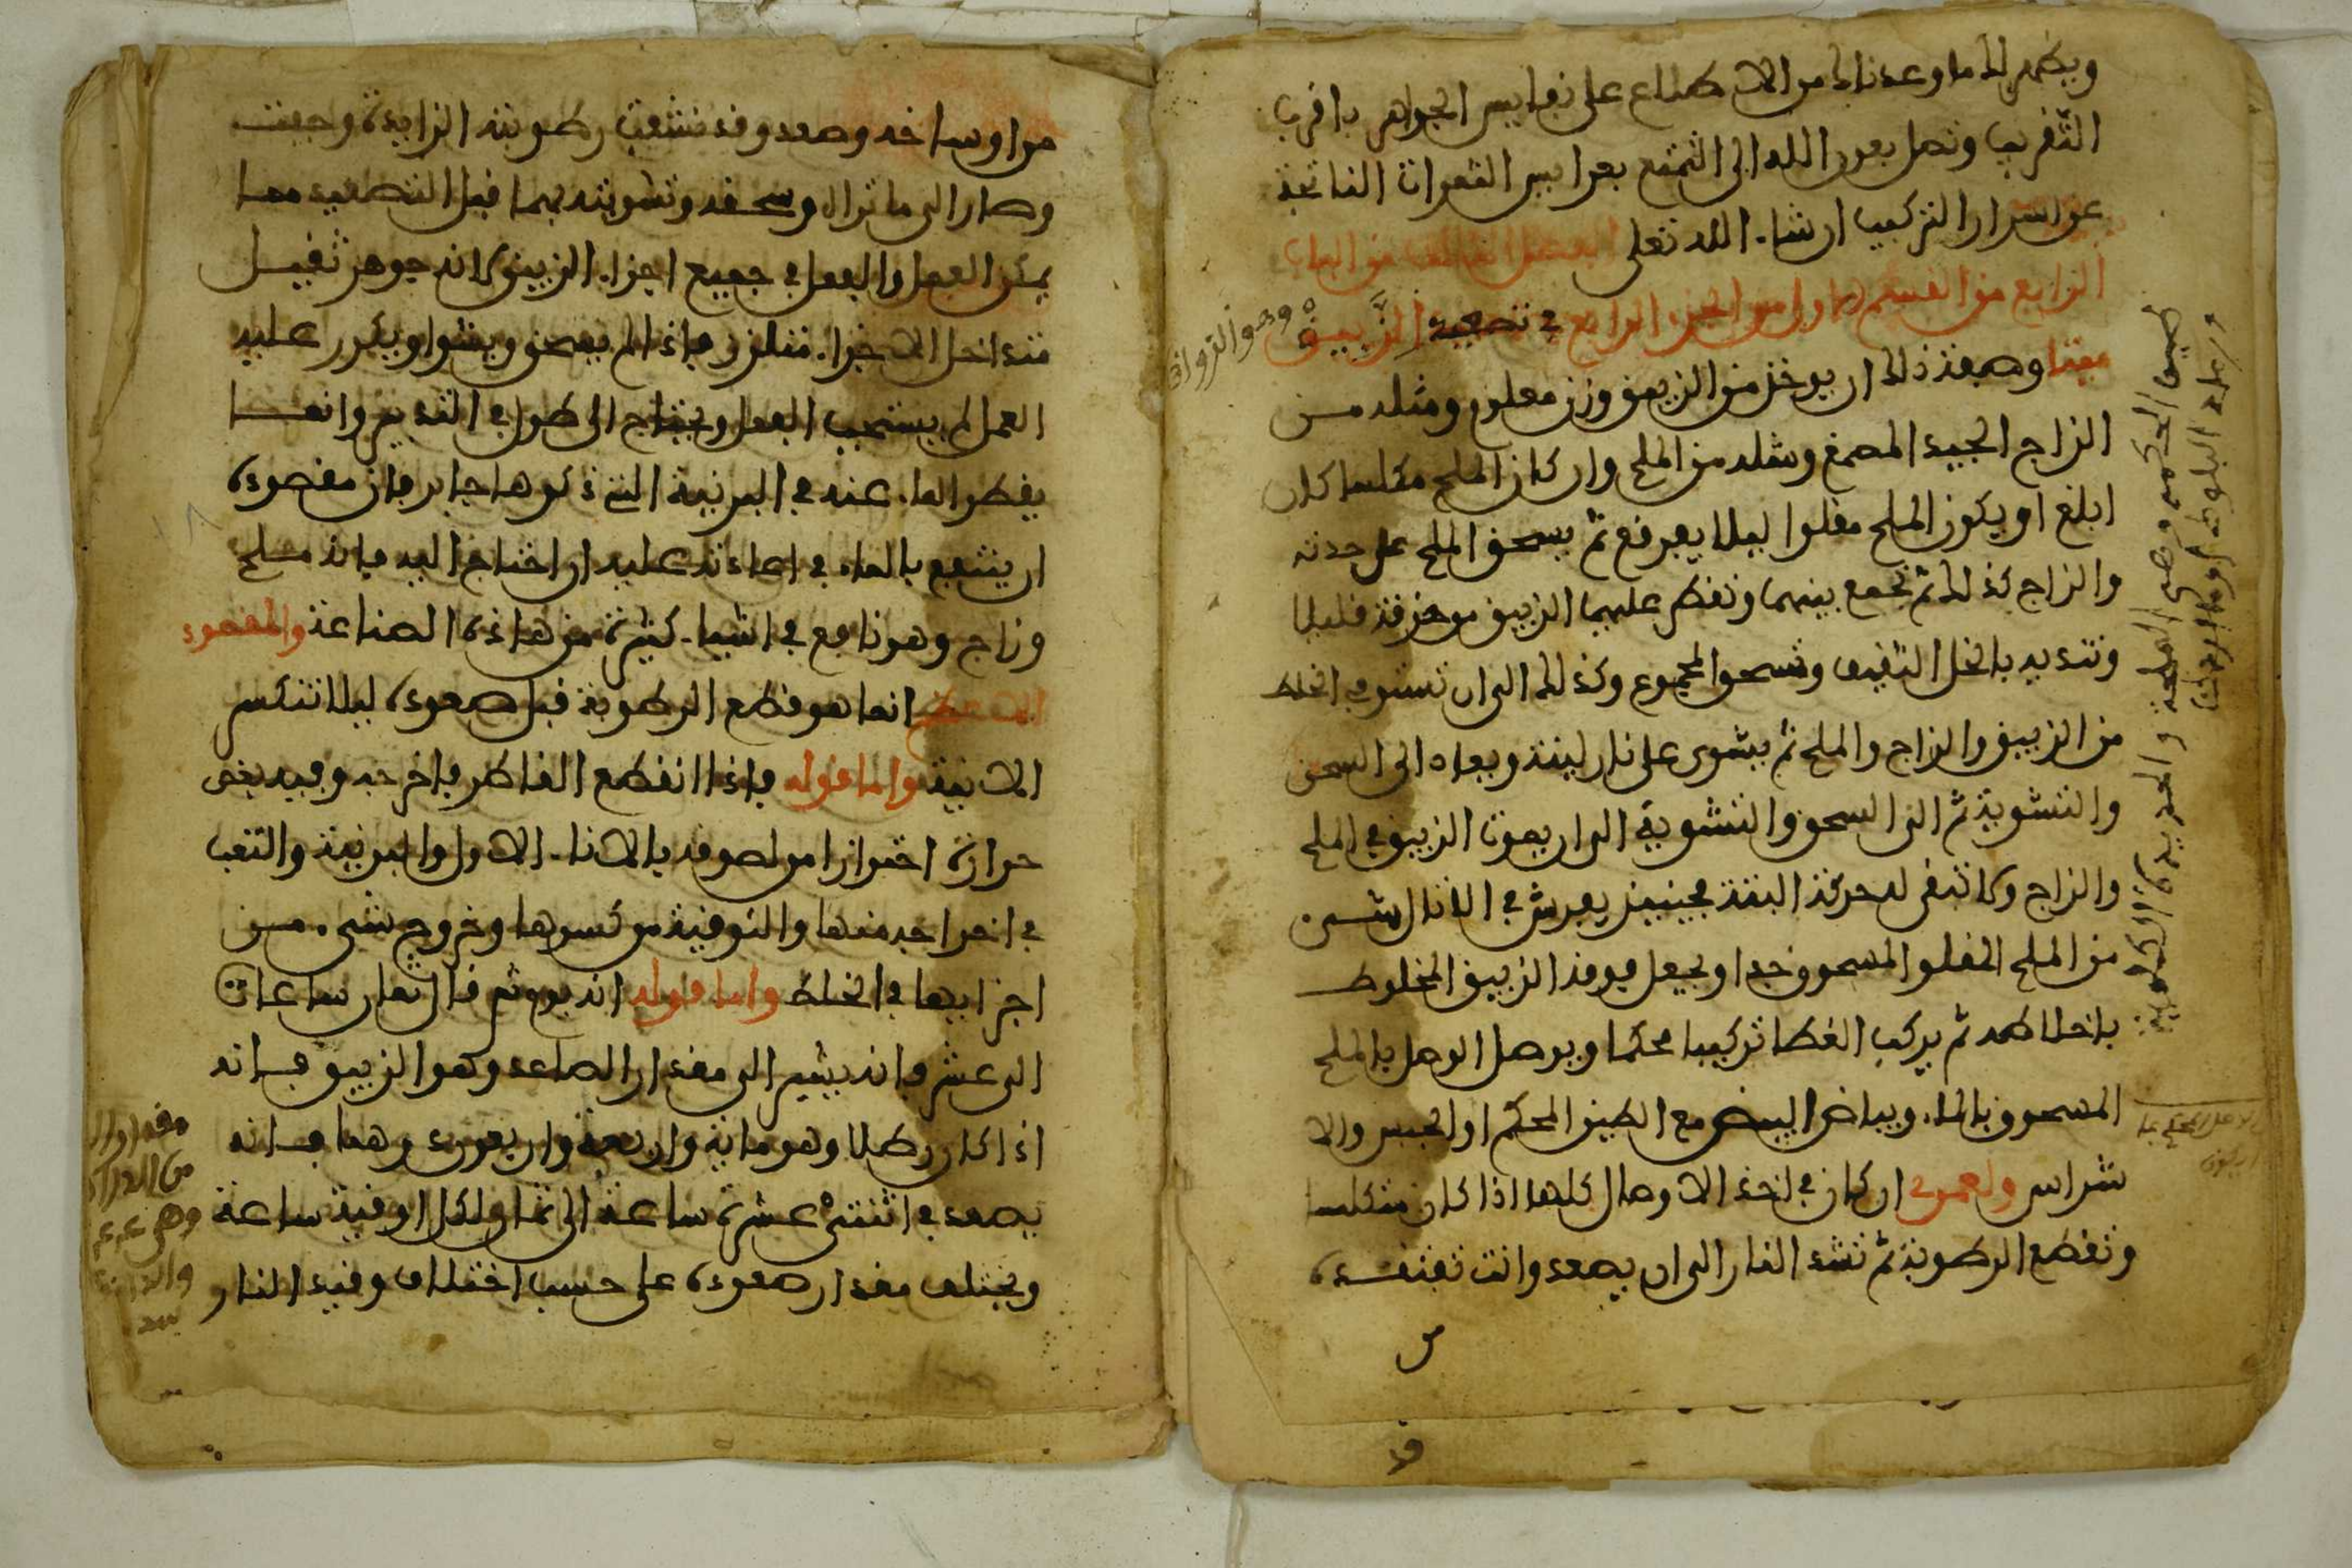 ويظهر لك ما وعدناك من الاطلاع على نفايس الجواهر باقرب
التقريب وتصل بعون الله الى التمتع بعرايس الثمرات الناتجة
عن اسرار التركيب ان شاء الله تعلى الفصل الثالث من الباب
الرابع من القسم الاول من الجزء الرابع في تصعيد الزيبق
ميتا وصفة ذلك ان يوخذ من الزيبق وزن معلوم ومثله من
الزاج الجيد المصمغ ومثله من الملح وان كان الملح مكلسا كان
ابلغ او يكون الملح مقلوا ليلا يفرقع ثم يسحق الملح على حدته
والزاج كذلك ثم تجمع بينهما وتقطر عليهما الزيبق من خرقة قليلا
وتنديه بالخل الثقيف وتسحق المجموع وكذلك الى ان تستوفي اخلاط
من الزيبق والزاج والملح ثم يشوى على نار لينة ويعاد الى السحق
والتشوية ثم الى السحق والتشوية الى ان يموت الزيبق في الملح
والزاج ولا تبقى له حركة البتة فحينيذ يفرش في الاثال شي من
من الملح المقلو المسحوق جدا ويجعل فوقه الزيبق المخلوط
باخلاطه ثم يركب الغطا تركيبا محكما ويوصل الوصل بالملح
المسحوق بالماء وبياض البيض مع الطين المحكم او الجبس والا
شراس ولعمري ان كان في اخذ الاوصال كلها اذا كان متكلسا
وتقطع الرطوبة ثم تشد النار الى ان يصعد وانت تفتقده
من اوساخه وصعد وقد نشفت رطوبته الزايدة وجفت
وصار الى ما تراه وسحقه وتشويته بهما قبل التصعيد مما
يمكن الفعل والفعل في جميع اجزاء الزيبق لانه جوهر ثقيل
متداخل الاجزاء متلزز فاذا لم يسحق ويشوا ويكرر عليه
العمل لم يستجب الفعل ويحتاج الى طول في التدبير وانما
يقطر الماء عنه في البرنية التي ذكرها جابر فان مقصوده
ان ينتفع بالماء في اعادته عليه ان احتاج اليه فانه ملح
وزاج وهو نافع في اشياء كثيرة من هاذه الصناعة والمقصود
الاعظم انما هو قطع الرطوبة قبل صعوده ليلا تتكسر
الانية واما قوله فاذا انقطع القاطر فاخرجه وفيه بعض
حرارة احترازا من لصوقه بالاناء الاول والبرنية والتعب
في اخراجه منها والتوقية من كسرها وخروج شيء من
اجزايها في الخلط واما قوله انه يوم ثم قال ثمان ساعات
الى عشر فانه يشير الى مقدار الصاعد وهو الزيبق فانه
اذا كان رطلا وهو ماية واربعة واربعون درهما فانه
يصعد في اثنتي عشرة ساعة الى تمام ولكل اوقية ساعة
ويختلف مقدار صعوده على حسب اختلاف وقيد النار